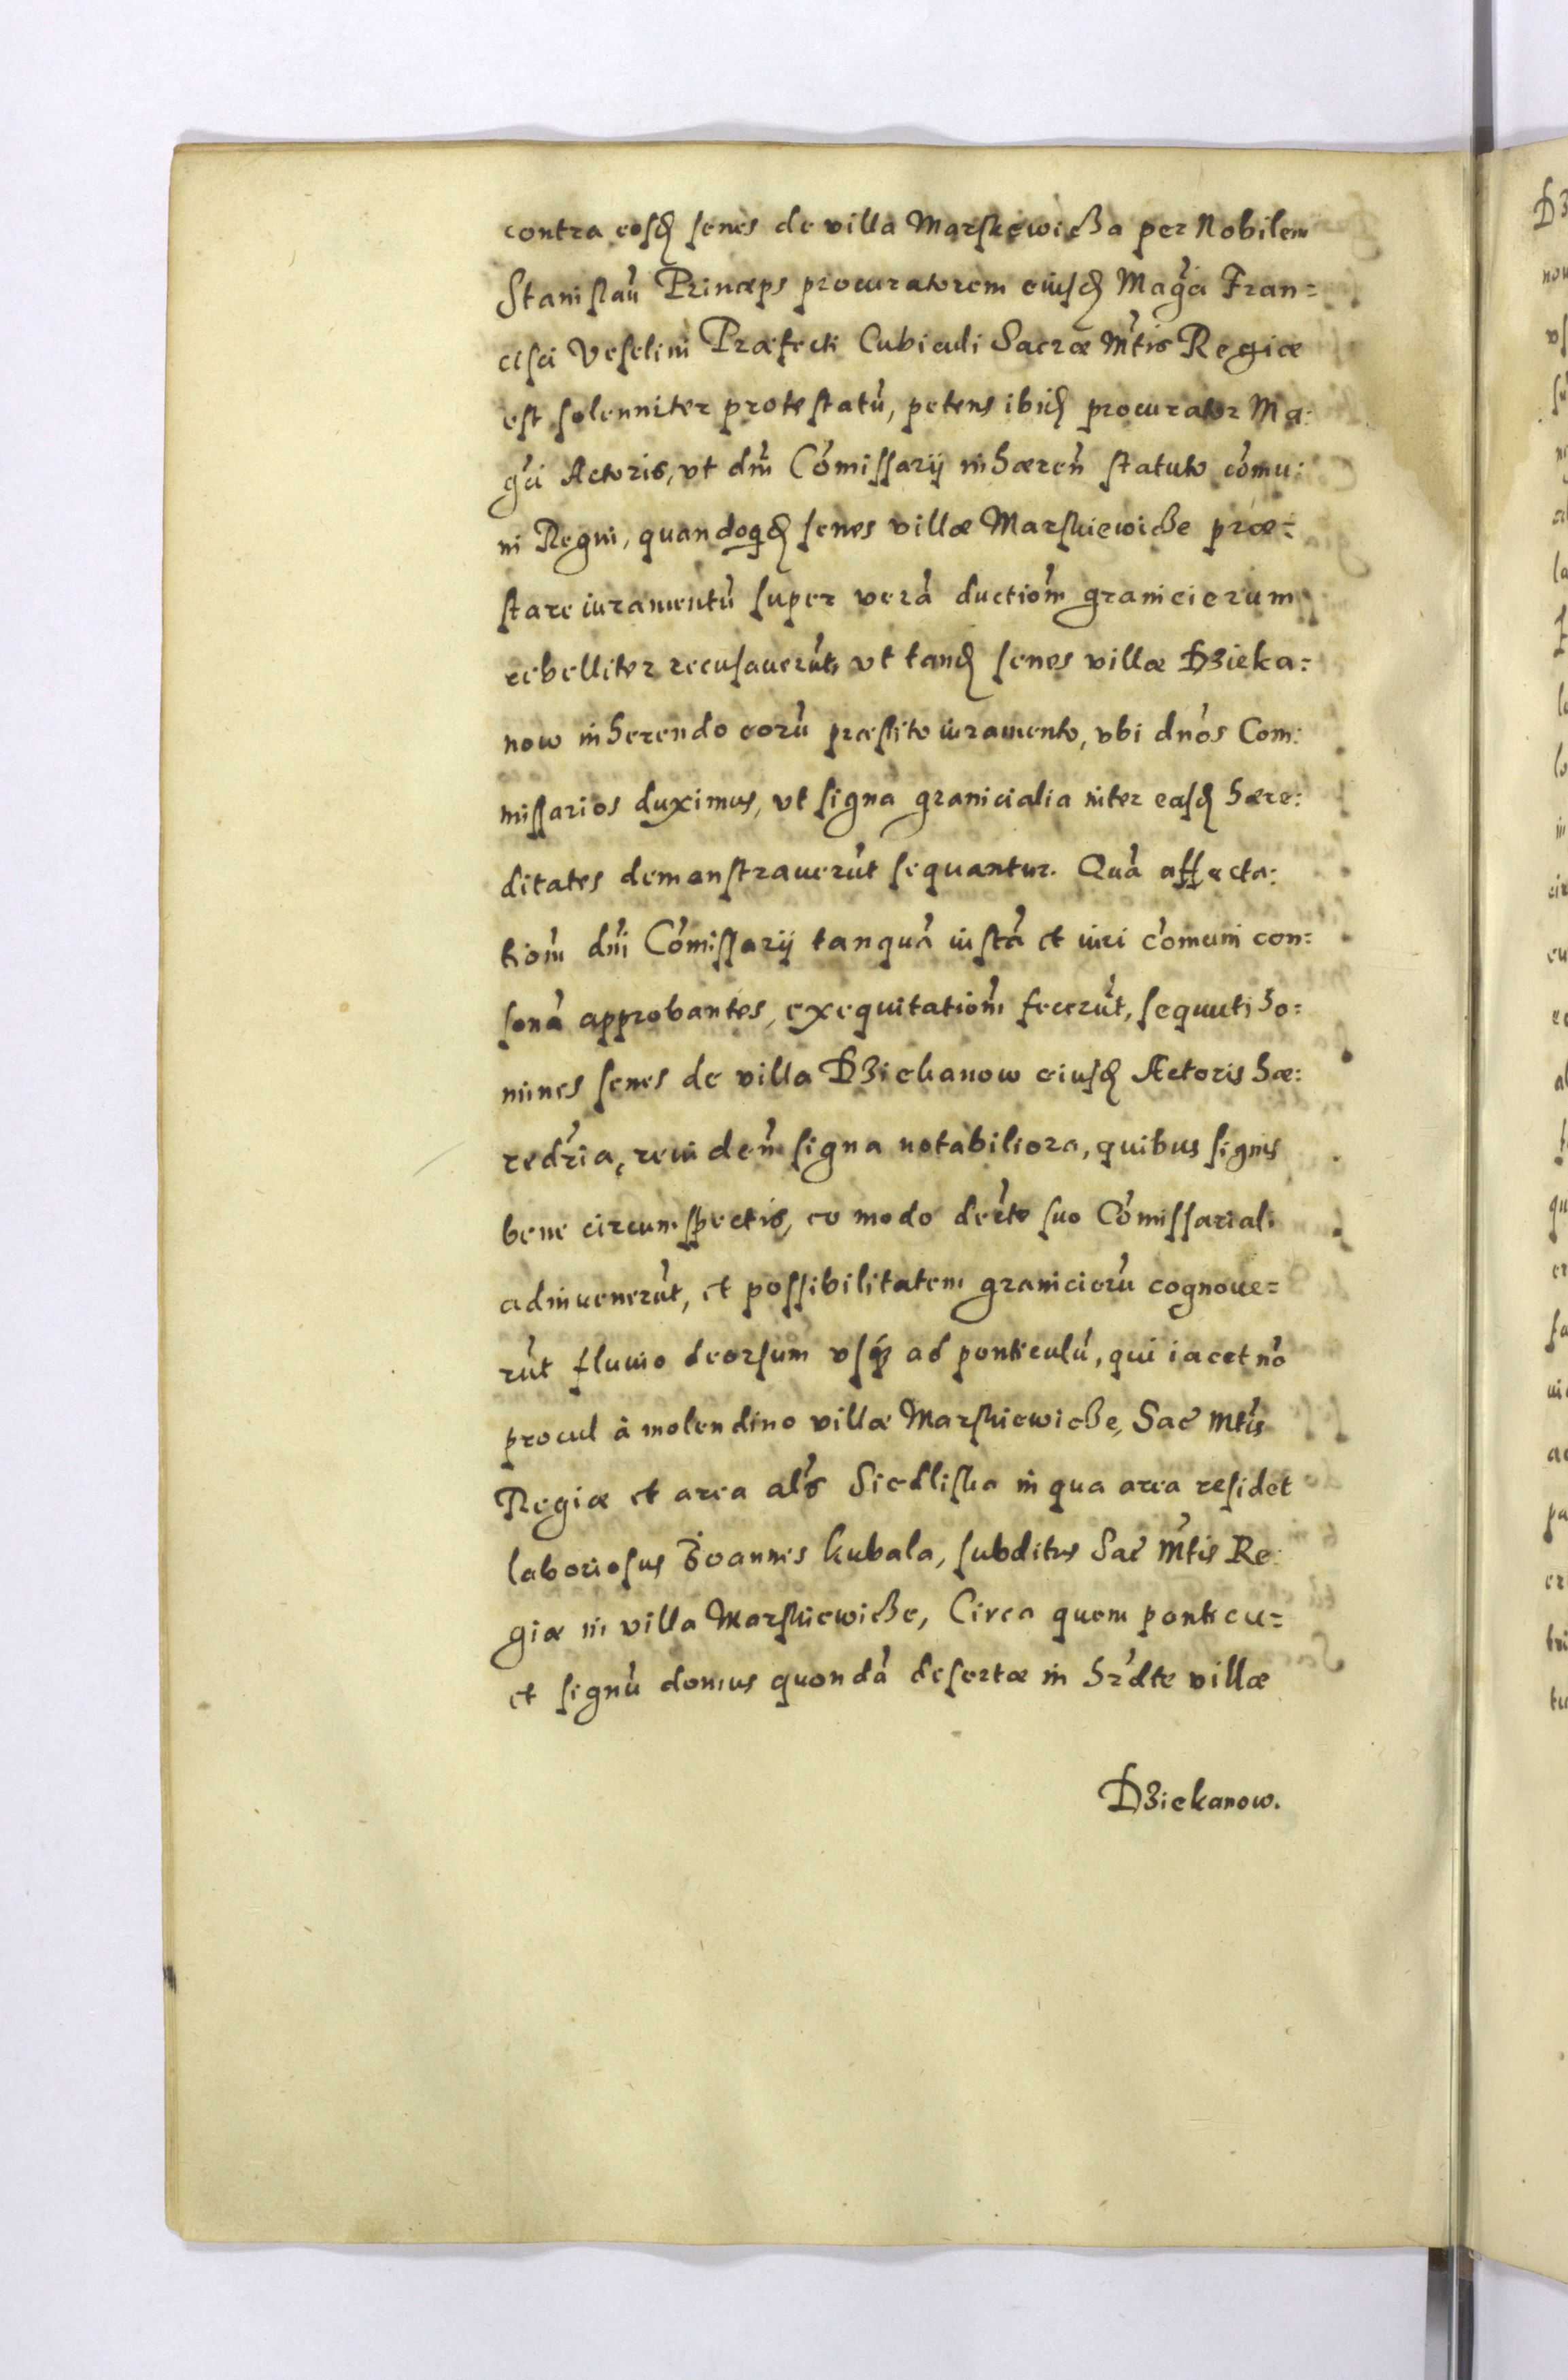 contra eosđ senes de villa Marskewicza per Nobilem
Stanislaú Princeps procuratorem eiusđ Magći Fran=
cisci Veselini Præfecti Cubiculi Sacræ Mt́is Regiæ
est solenniter protestatú, petens ibiđ procurator Ma:
gći Actoris, vt dńi Cómissarij inhæreń statuto cómu:
ni Regni, quandoqđ senes villæ Marskiewicze præ=
stare iuramentú super verá ductioḿ granicierum
rebelliter recusauerút, vt tanđ senes villæ Dzieka:
now inherendo eorú præstito iuramento, vbi dnós Com:
missarios duximus, vt signa granicialia inter easđ hære:
ditates demonstrauerút sequantur. Quá affecta:
tioḿ dńi Cómissarij tanquá iustá et iuri cómuni con=
soná approbantes, exequitatioḿ fecerút, sequuti ho=
mines senes de villa Dziekanow eiusđ Actoris hæ:
redŕia, reuideń signa notabiliora, quibus signis
bene circumspectis, eo modo decŕto suo Cómissariali
adinuenerút, et possibilitatem granicierú cognoue=
rút fluuio deorsum vsq; ad ponticulú, qui iacet nó
procul à molendino villæ Marskiewicze, Sac̃ Mt́is
Regiæ et area alś Siedliska in qua area residet
laboriosus Joannes Kubala, subditus Sac̃ Mt́is Re:
giæ in villa Marskiewicze, Circa quem ponticu=
et signú domus quondá desertæ in hŕdte villæ
Dziekanow.